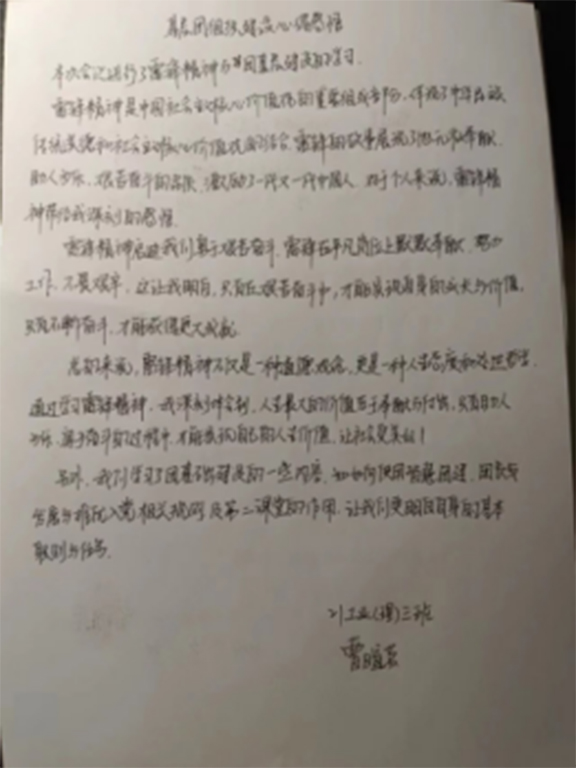 基层团组织建设心得感悟
本次会议进行了雷锋精神与团基层建设的学习
雷锋精神是中国社会主义核心价值体的重要组成部分,体现了中华民族
传统美德和社会主义核心价值观的结合.雷锋的故事展现了他无私奉献、
助人为乐、艰苦奋斗的品质,激励了一代又一代中国人.对于个人来说,雷锋精
神带给我深刻的感悟.
雷锋精神启迪我们勇于艰苦奋斗.雷锋在平凡岗位上默默奉献、努力
工作、不畏艰辛.这让我明白,只有在艰苦奋斗中,才能实现自身的成长与价值,
只有不断奋斗,才能获得更大成就.
总的来说,雷锋精神不仅是一种道德观念,更是一种人生态度和
通过学习雷锋精神,我深刻体会到,人生最大的价值在于奉献与付出,只有助人
为乐、勇于奋斗的过程中,才能实现自己的人生价值,让社会更美好!
另外,我们学习了团基础建设的一些内容,如如何使用智慧团建,团员
发展与推优入党相关规则及第二课堂的作用,让我们更明白自身的基本
职责与任务.
21工业(理)三班
曹